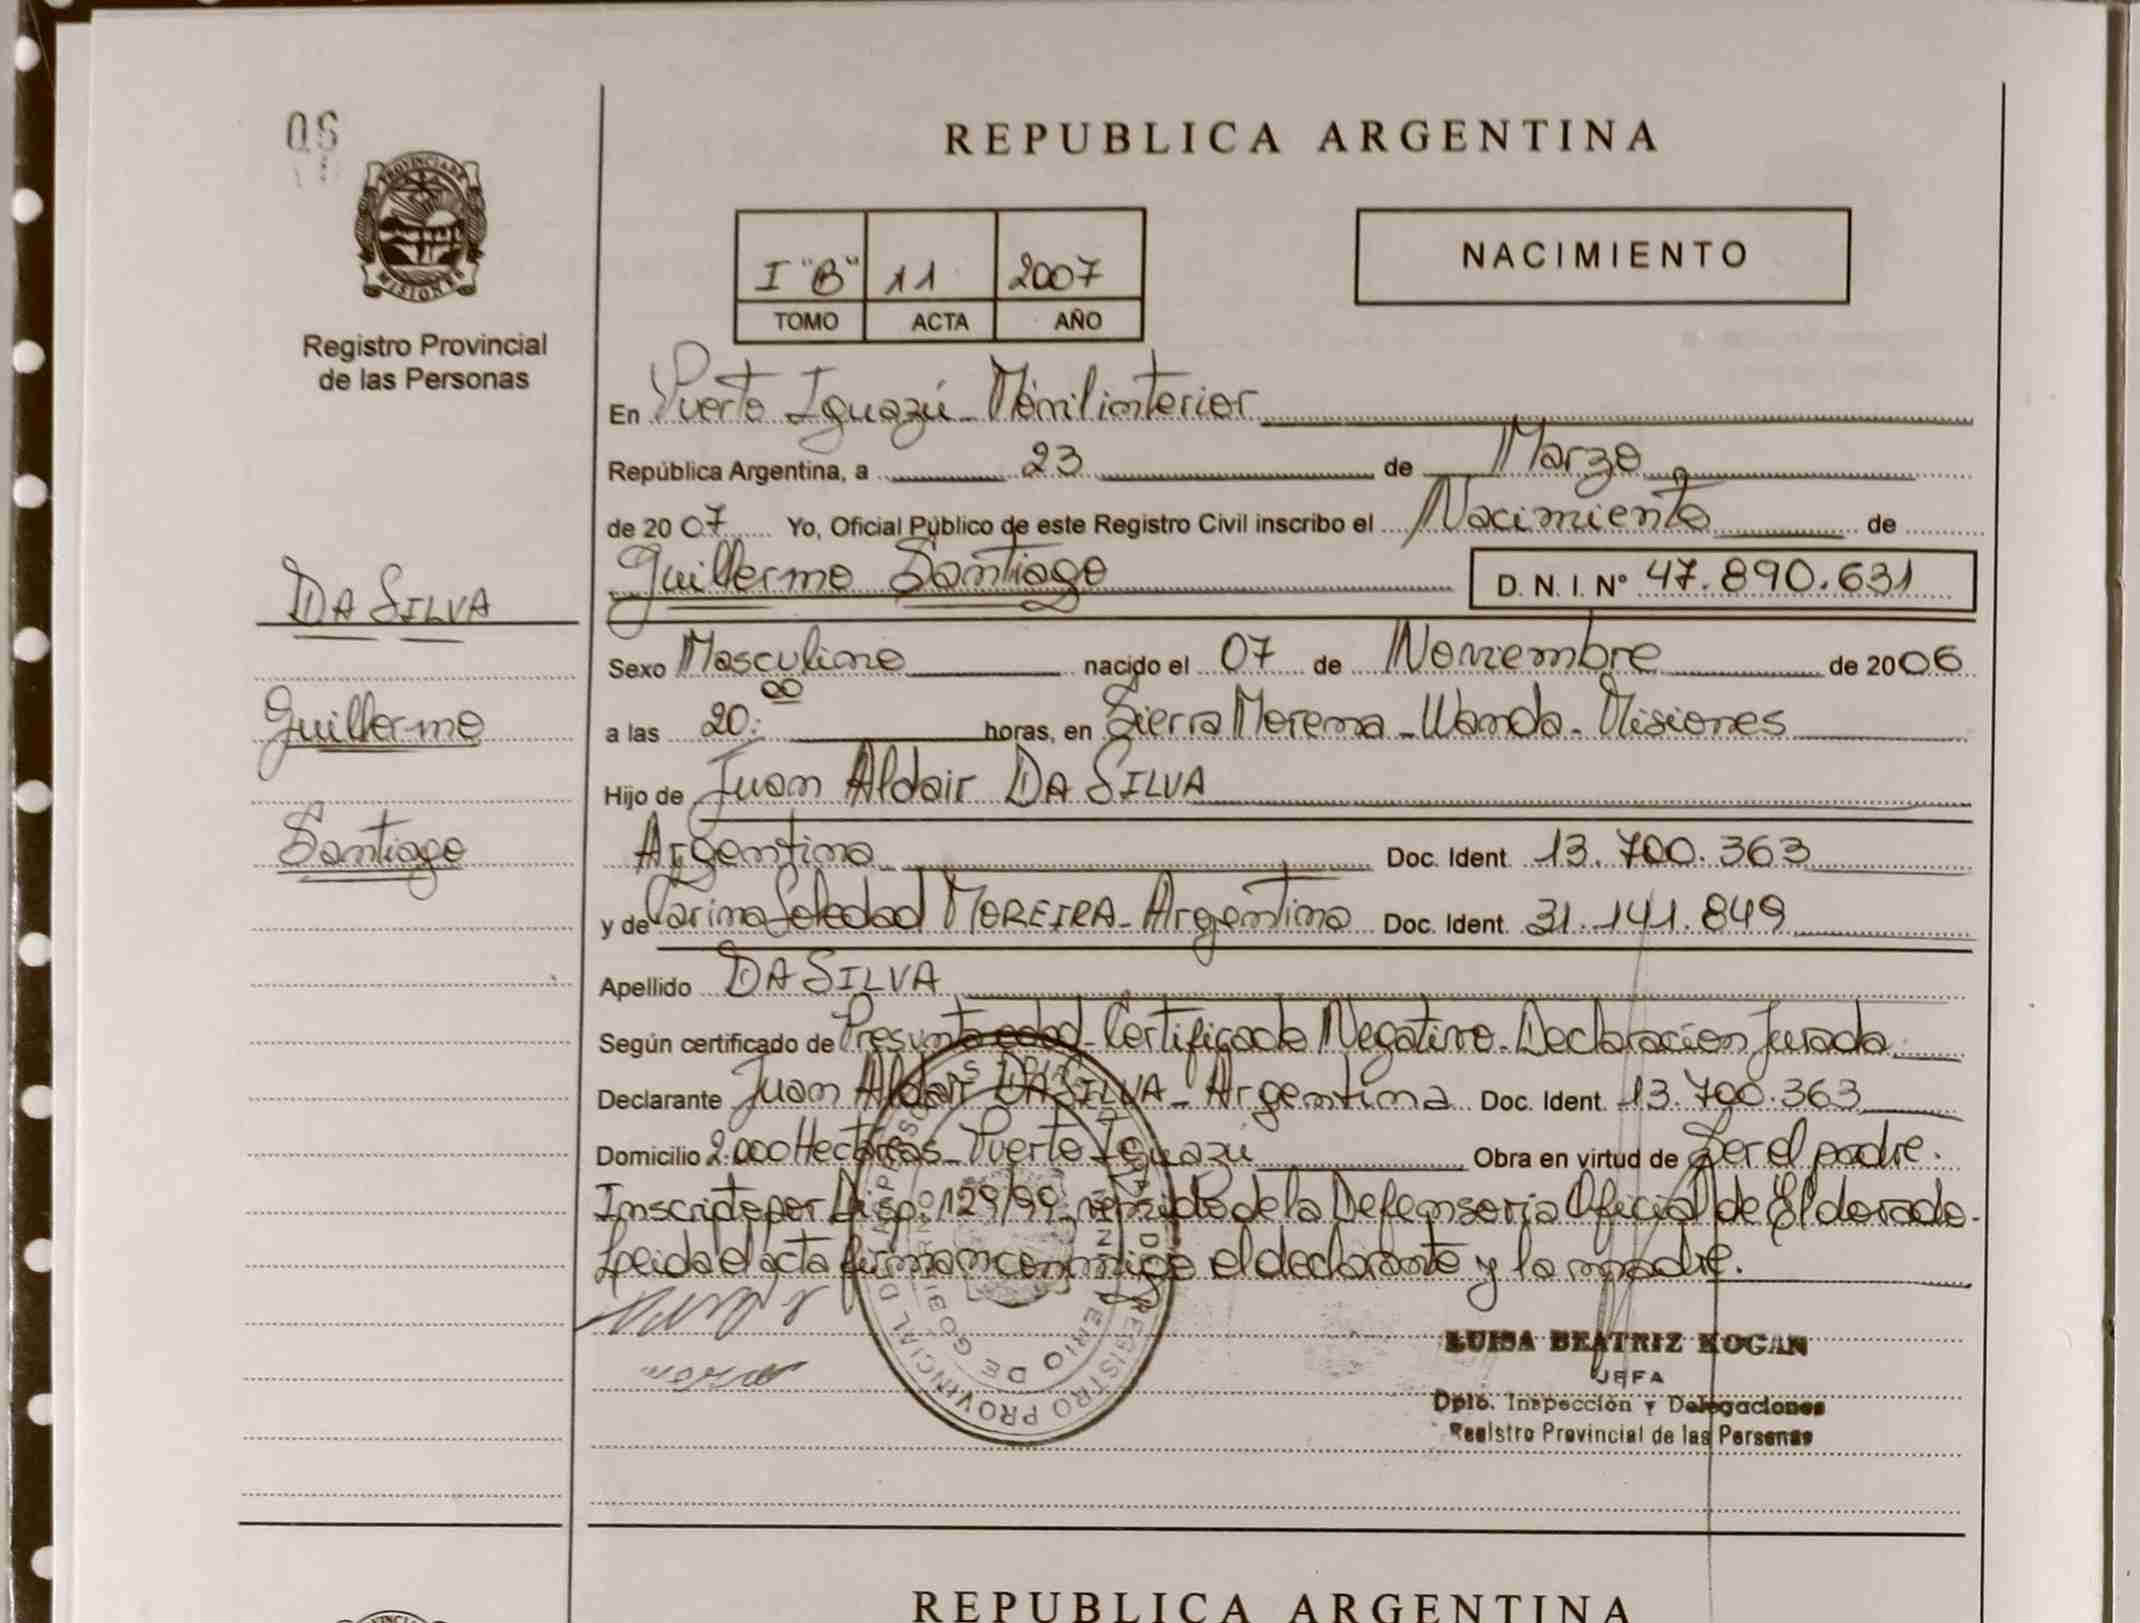 06
PROVINCIA DE
MISIONES
Registro Provincial
de las Personas
DA SILVA
Guillermo
Santiago
REPUBLICA ARGENTINA
I "B" 11 2007
TOMO ACTA AÑO
NACIMIENTO
En Puerto Iguazú - Móvil interior
República Argentina, a 23 de Marzo
de 2007 Yo, Oficial Público de este Registro Civil inscribo el Nacimiento de
Guillermo Santiago D. N. I. Nº 47.890.631
Sexo Masculino nacido el 07 de Noviembre de 2006
a las 20:00 horas, en Sierra Morena - Wanda - Misiones
Hijo de Juan Aldair DA SILVA
Argentina Doc. Ident. 13.700.363
y de Carina Soledad MOREIRA - Argentina Doc. Ident. 31.141.849
Apellido DA SILVA
Según certificado de Presunta edad - Certificado Negativo - Declaración Jurada
Declarante Juan Aldair DA SILVA - Argentina Doc. Ident. 13.700.363
Domicilio 2.000 Hectáreas - Puerto Iguazú Obra en virtud de Ser el padre.
Inscripto por Disp. 129/99 remitido de la Defensoria Oficial de Eldorado.
Leida el acta firman conmigo el declarante y la madre.
REGISTRO PROVINCIAL DE LAS PERSONAS
LUISA BEATRIZ KOGAN
JEFA
Dpto. Inspección y Delegaciones
Registro Provincial de las Personas
REPUBLICA ARGENTINA